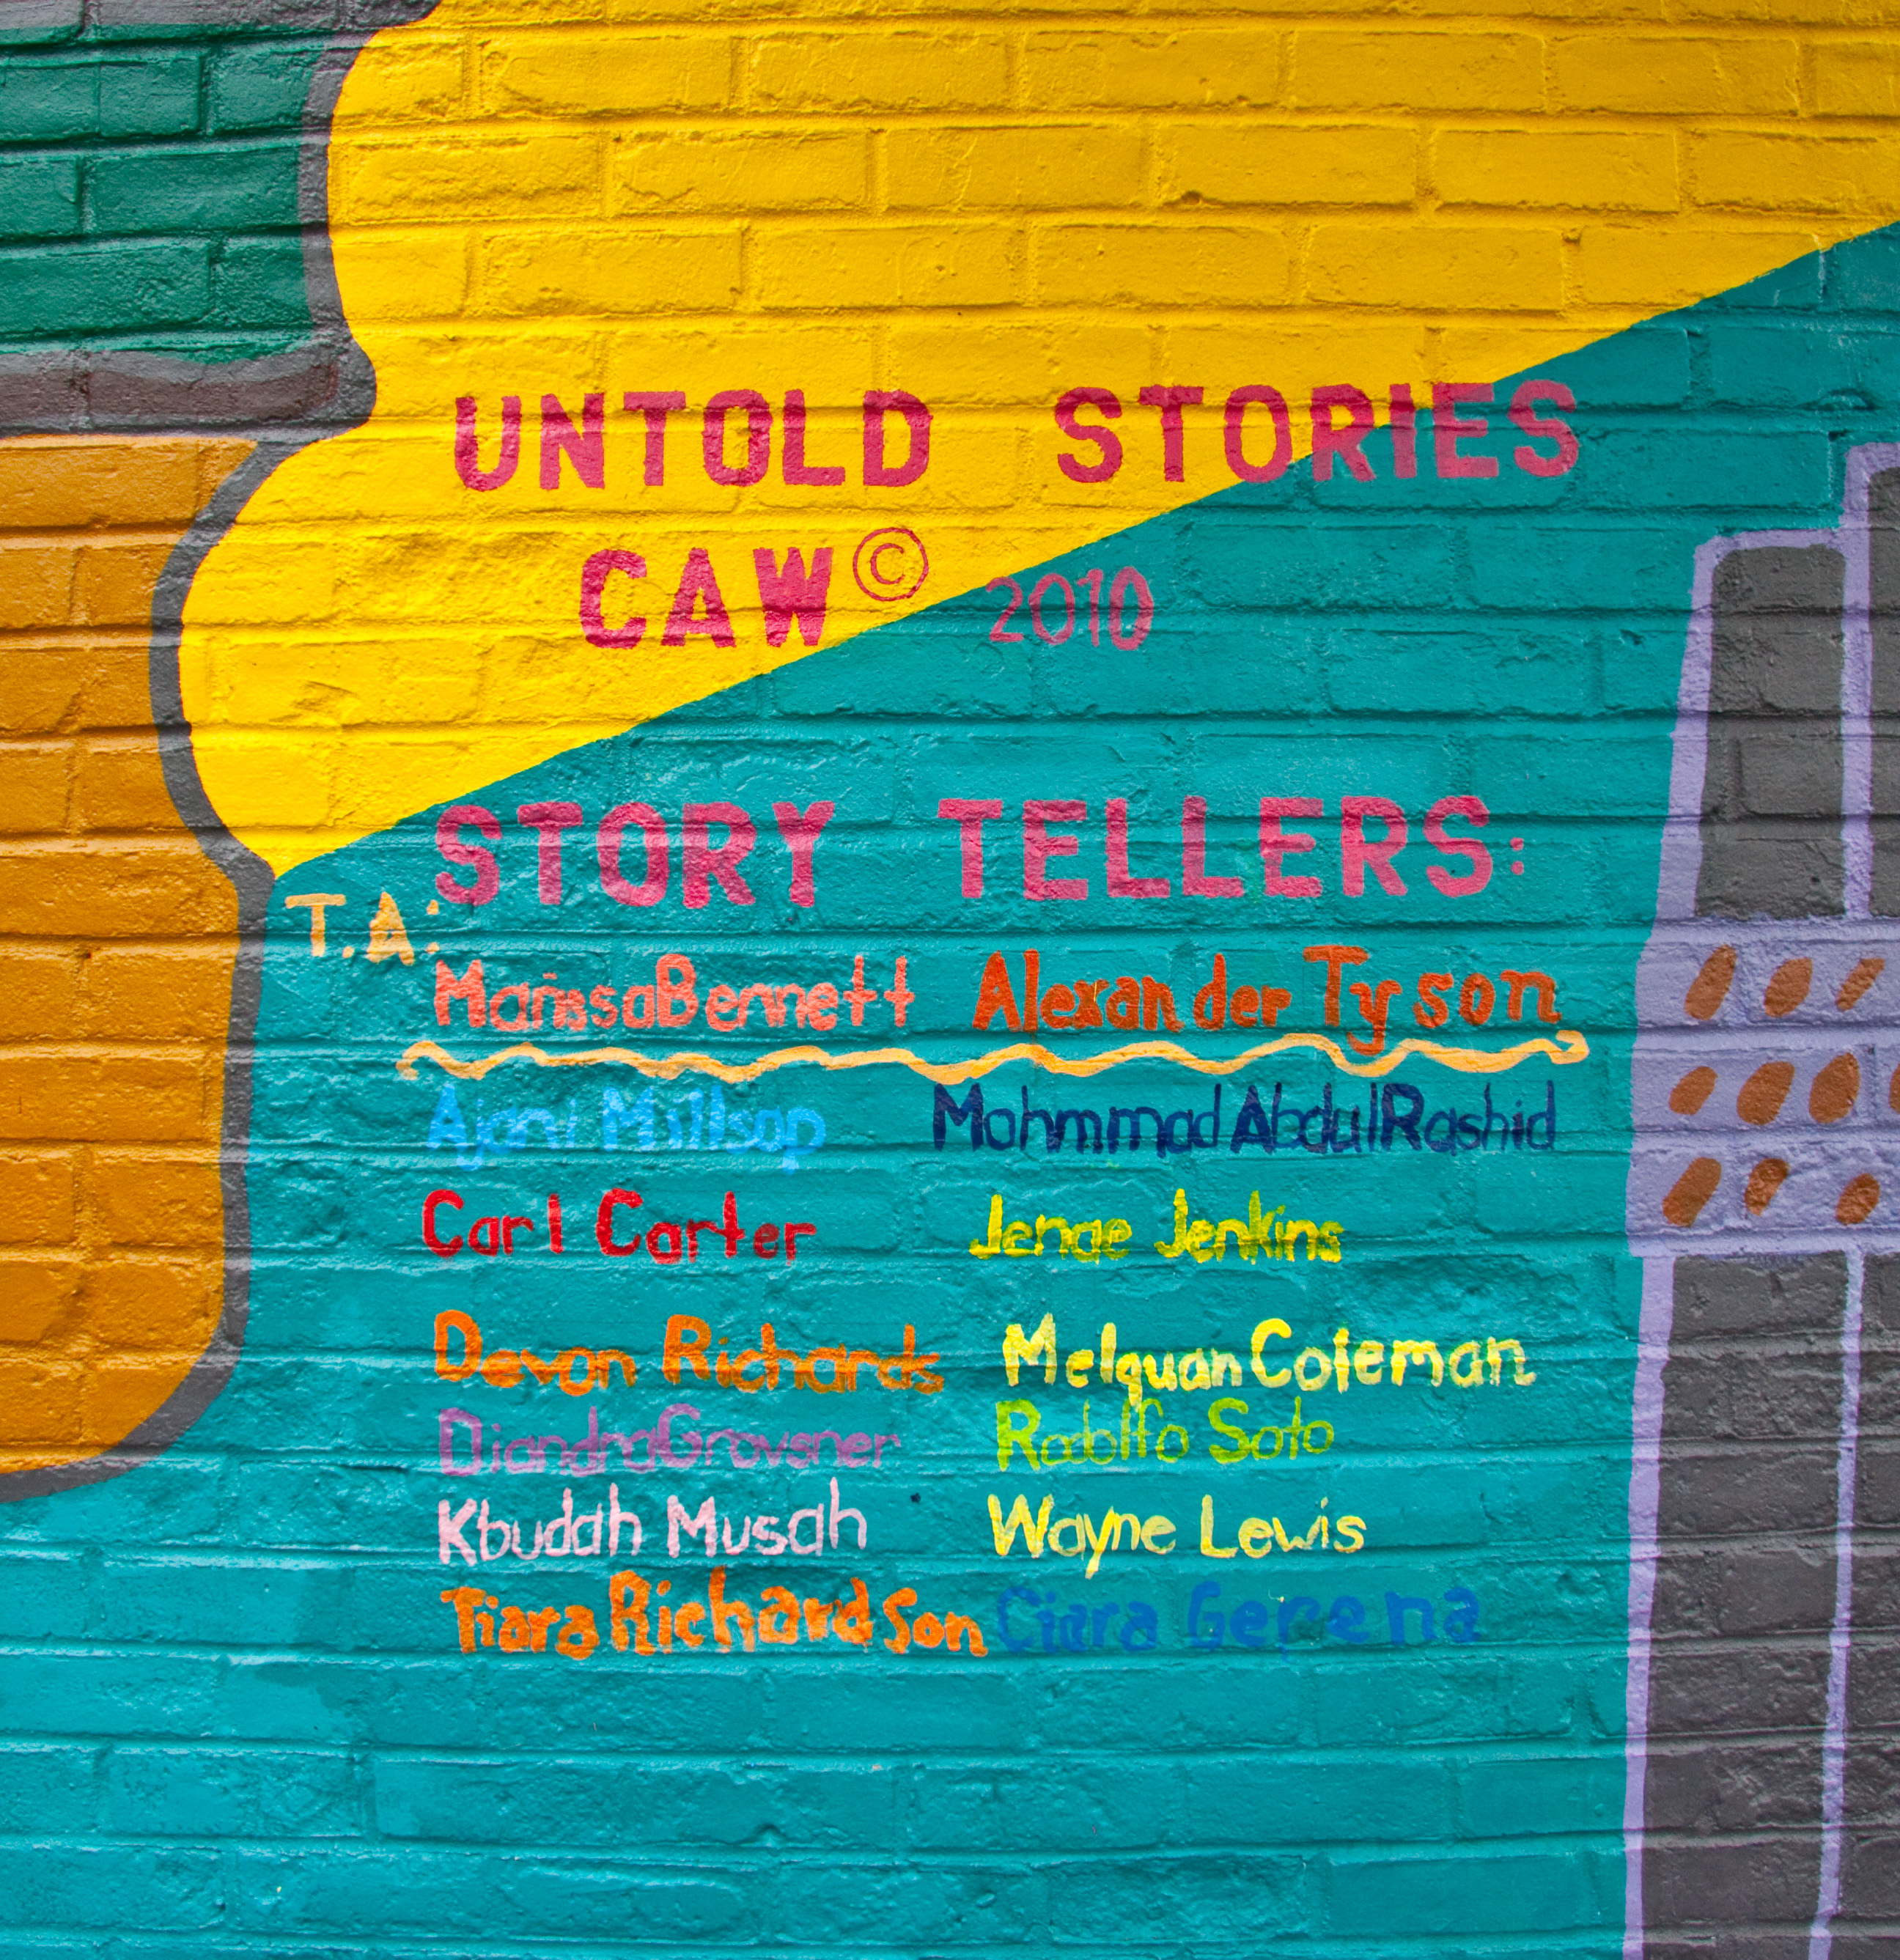 UNTOLD STORIES
CAW© 2010
STORY TELLERS:
T.A:
MarissaBennett Alexander Tyson
Ajani Millsap Mohmmad AbdulRashid
Carl Carter Jenae Jenkins
Devon Richards Melquan Coleman
DiandraGrovsner Rodolfo Soto
Kbudah Musah Wayne Lewis
Tiara RichardSon Ciara Gerena